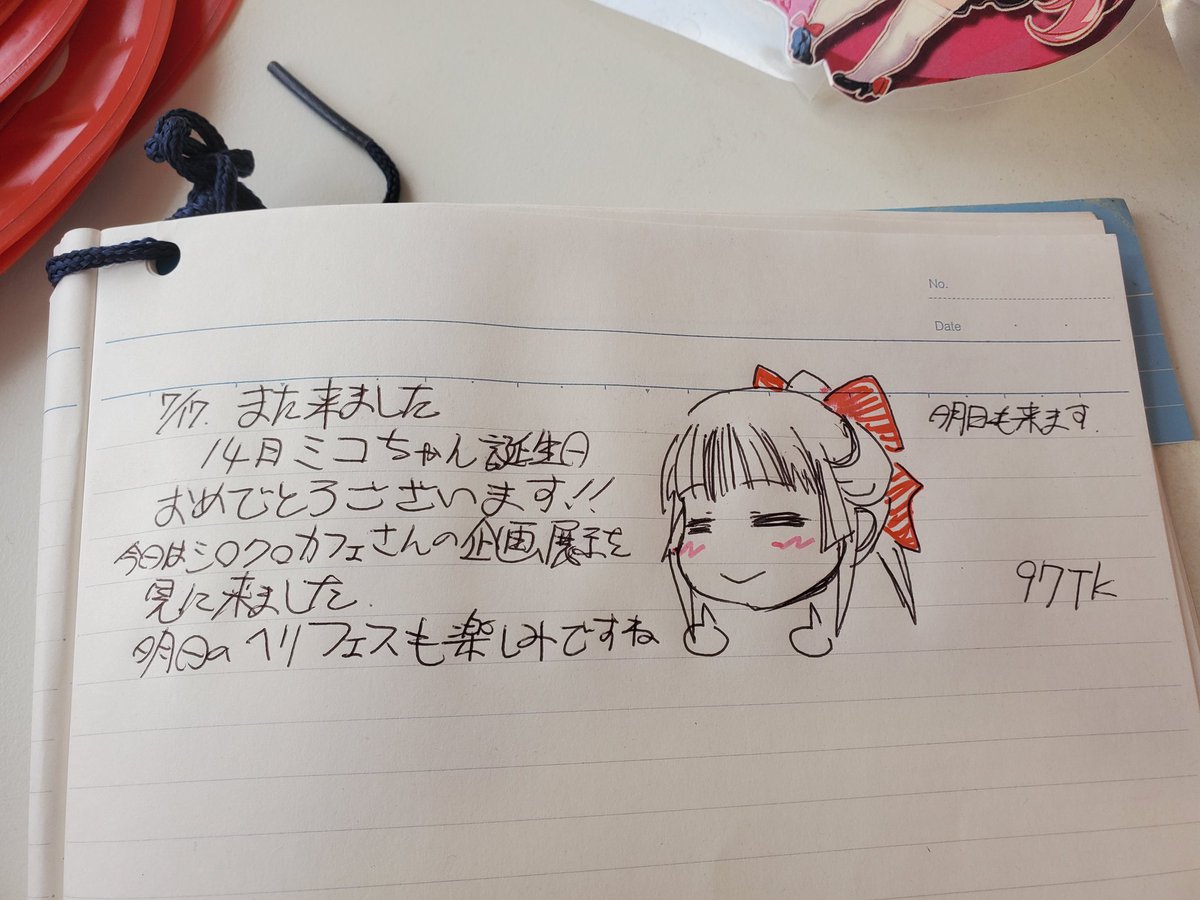 No.
Date
7/17. また来ました
14日ミコちゃん誕生日
おめでとうございます!!
今日はシロクロカフェさんの企画展示を
見に来ました.
明日のヘリフェスも楽しみですね
明日も来ます.
97Tk